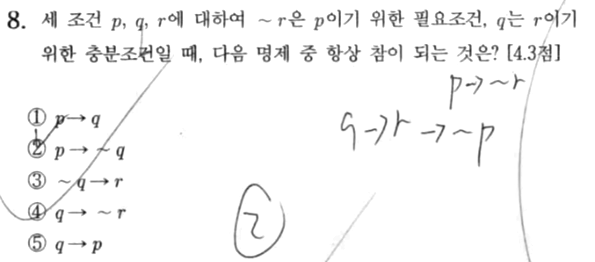 8. 세 조건 p, q, r에 대하여 ~r은 p이기 위한 필요조건, q는 r이기
위한 충분조건일 때, 다음 명제 중 항상 참이 되는 것은? [4.3점]
p→~r
① p→q
q→r→~p
② p→~q
③ ~q→r
④ q→~r
②
⑤ q→p